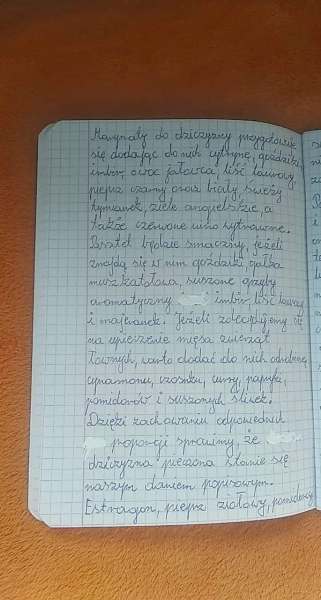 Marynaty do dziczyzny przygotowuje
się dodając do nich cytrynę, goździki
imbir, owoc jałowca, liść laurowy
pieprz czarny oraz biały, świeży
tymianek, ziele angielskie, a
także czerwone wino wytrawne.
Pasztet będzie smaczny, jeżeli
znajdą się w nim goździki, gałka
muszkatołowa, suszone grzyby
aromatyczny imbir, liść laurowy
i majeranek. Jeżeli zdecydujemy się
na upieczenie mięsa zwierząt
łownych, warto dodać do nich odrobinę
cynamonu, czosnku, curry, papryki,
pomidorów i suszonych śliwek.
Dzięki zachowaniu odpowiednich
poporcji sprawimy, że
dziczyzna pieczona stanie się
naszym daniem popisowym.
Estragon, pieprz ziołowy, pomidory